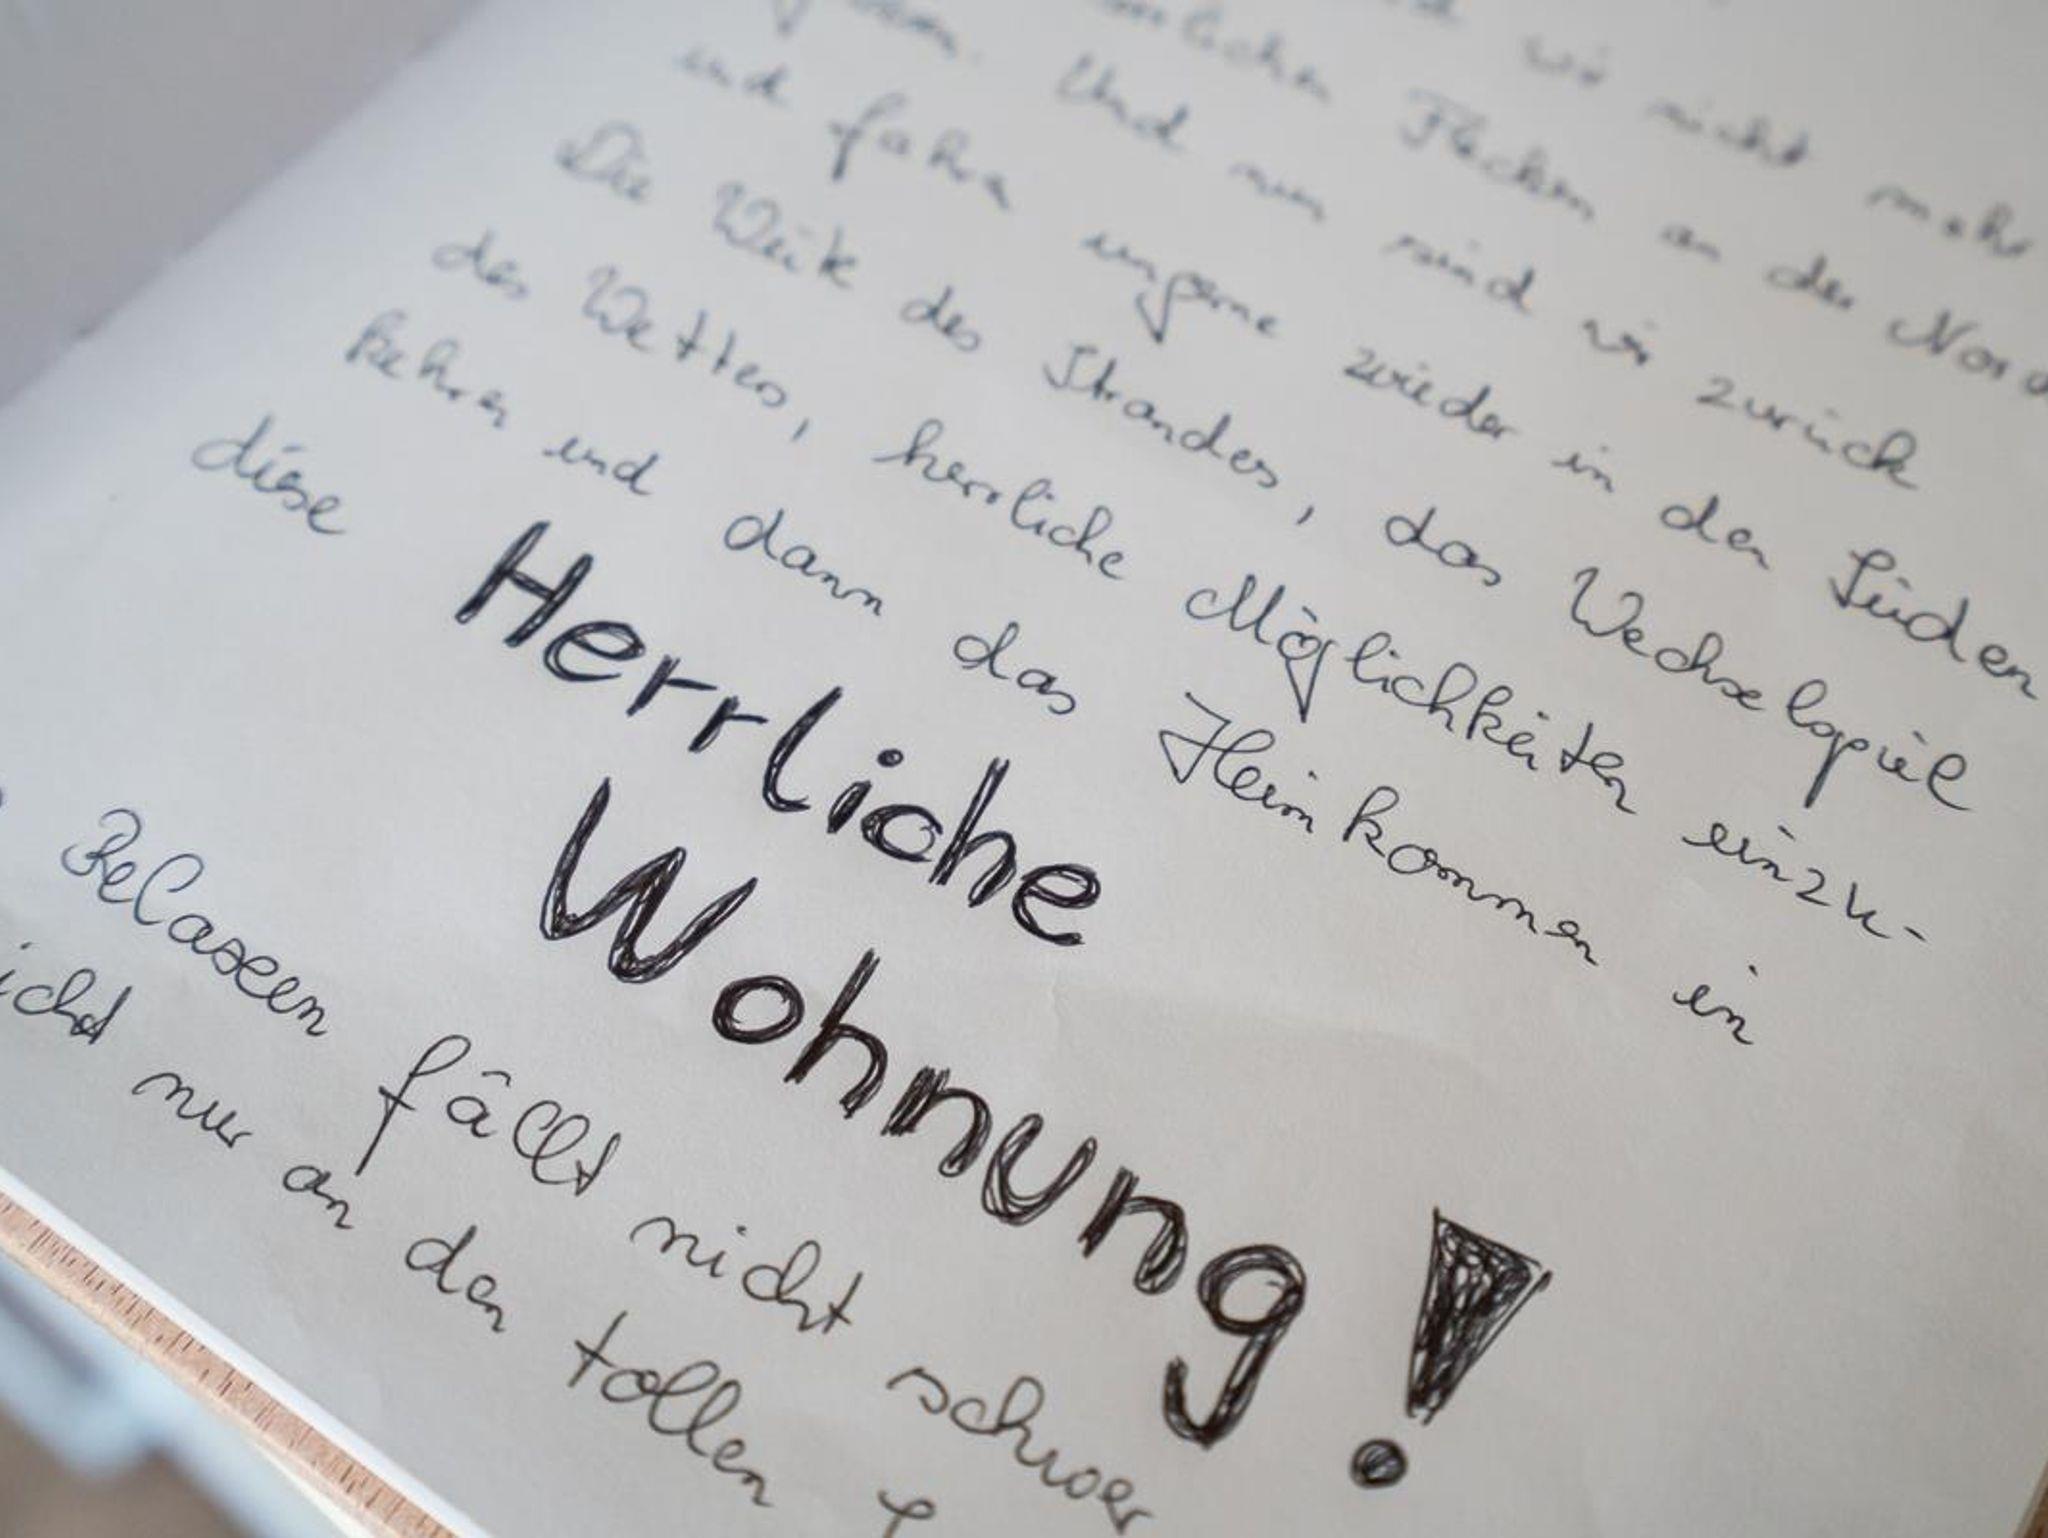 wir nicht mehr
Flecken an der Nord
Und nun sind wir zurück
und fahrn ungerne wieder in den Süden
Die Weite des Strandes, das Wechselspiel
des Wetters, herrliche Möglichkeiten einzu-
kehren und dann das Heimkommen in
diese Herrliche
Wohnung!
Relaxen fällt nicht schwer
icht nur an den tollen